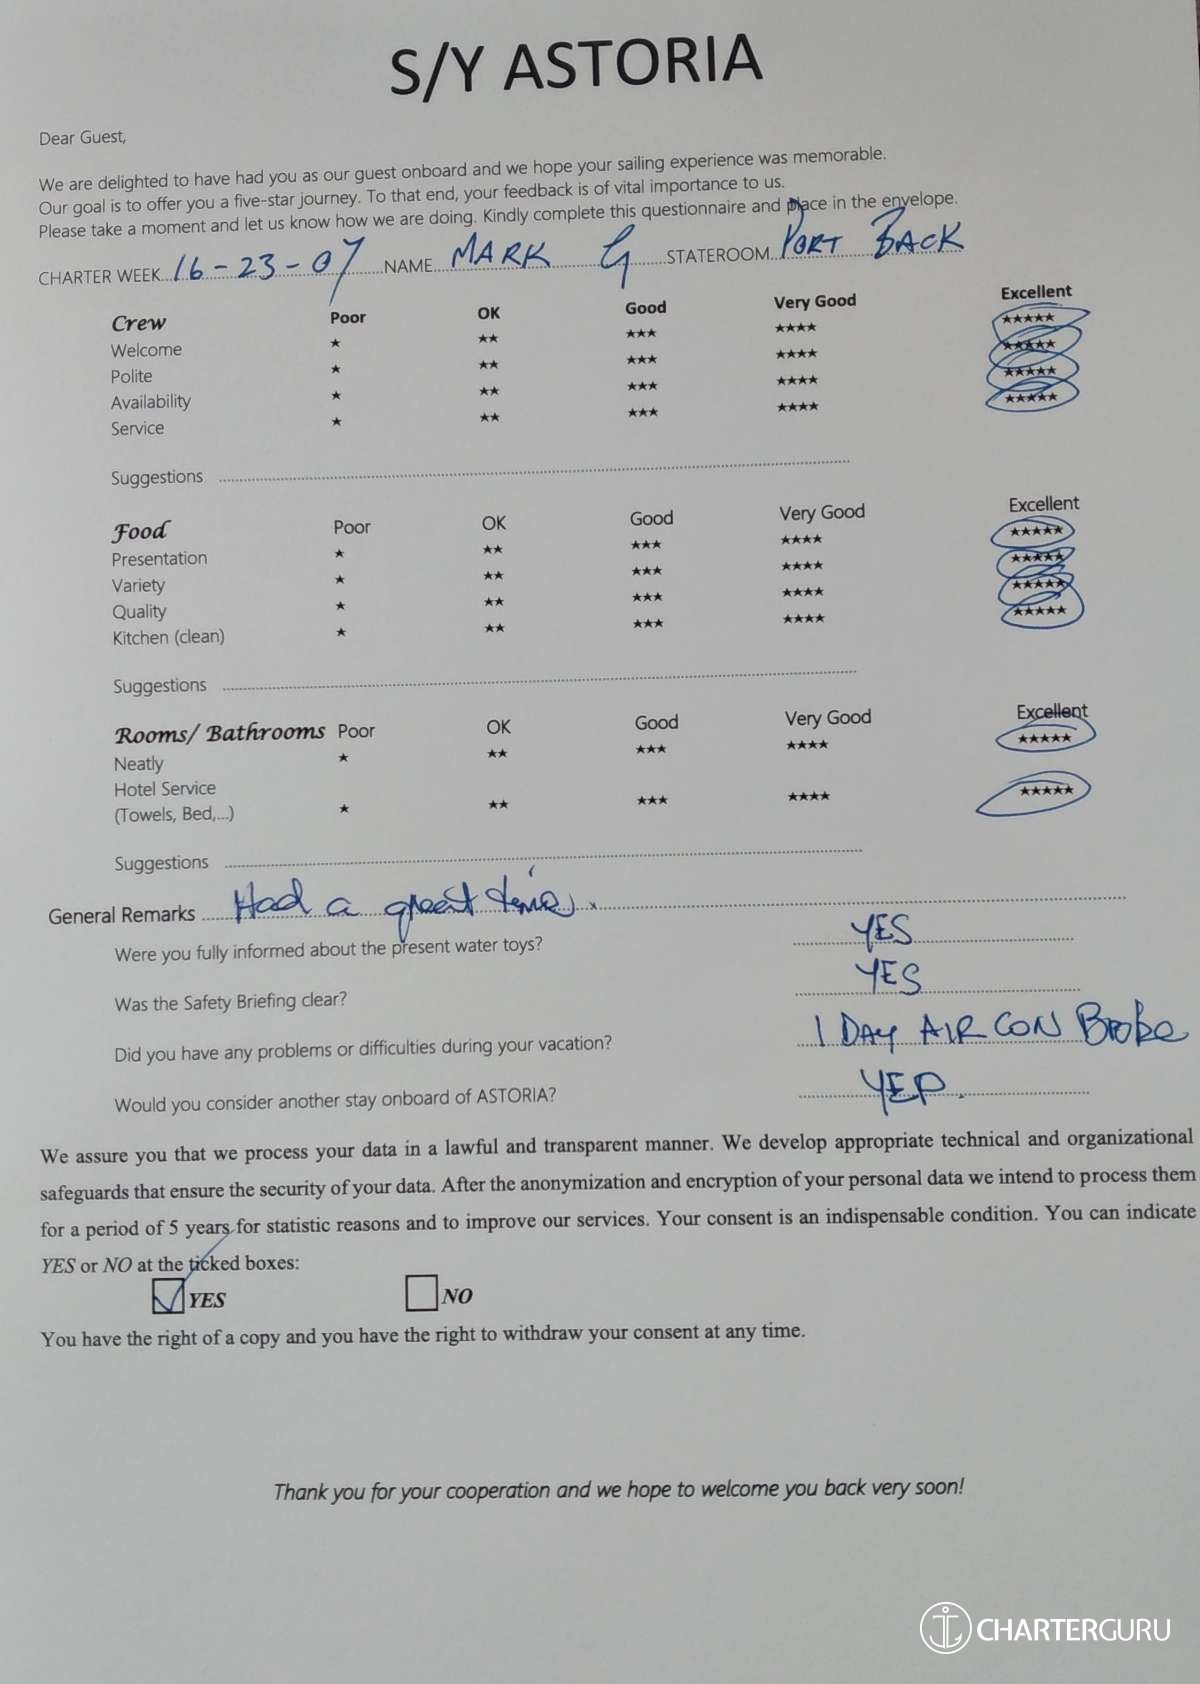 S/Y ASTORIA
Dear Guest,
We are delighted to have had you as our guest onboard and we hope your sailing experience was memorable.
Our goal is to offer you a five-star journey. To that end, your feedback is of vital importance to us.
Please take a moment and let us know how we are doing. Kindly complete this questionnaire and place in the envelope.
CHARTER WEEK 16-23-07 NAME MARK G STATEROOM PORT BACK
Crew Poor OK Good Very Good Excellent
Welcome ★ ★★ ★★★ ★★★★ ★★★★★
Polite ★ ★★ ★★★ ★★★★ ★★★★★
Availability ★ ★★ ★★★ ★★★★ ★★★★★
Service ★ ★★ ★★★ ★★★★ ★★★★★
Suggestions
Food Poor OK Good Very Good Excellent
Presentation ★ ★★ ★★★ ★★★★ ★★★★★
Variety ★ ★★ ★★★ ★★★★ ★★★★★
Quality ★ ★★ ★★★ ★★★★ ★★★★★
Kitchen (clean) ★ ★★ ★★★ ★★★★ ★★★★★
Suggestions
Rooms/ Bathrooms Poor OK Good Very Good Excellent
Neatly ★ ★★ ★★★ ★★★★ ★★★★★
Hotel Service
(Towels, Bed,...) ★ ★★ ★★★ ★★★★ ★★★★★
Suggestions
General Remarks Had a great time
Were you fully informed about the present water toys? YES
Was the Safety Briefing clear? YES
Did you have any problems or difficulties during your vacation? 1 DAY AIR CON Broke
Would you consider another stay onboard of ASTORIA? YEP.
We assure you that we process your data in a lawful and transparent manner. We develop appropriate technical and organizational
safeguards that ensure the security of your data. After the anonymization and encryption of your personal data we intend to process them
for a period of 5 years for statistic reasons and to improve our services. Your consent is an indispensable condition. You can indicate
YES or NO at the ticked boxes:
YES NO
You have the right of a copy and you have the right to withdraw your consent at any time.
Thank you for your cooperation and we hope to welcome you back very soon!
CHARTERGURU